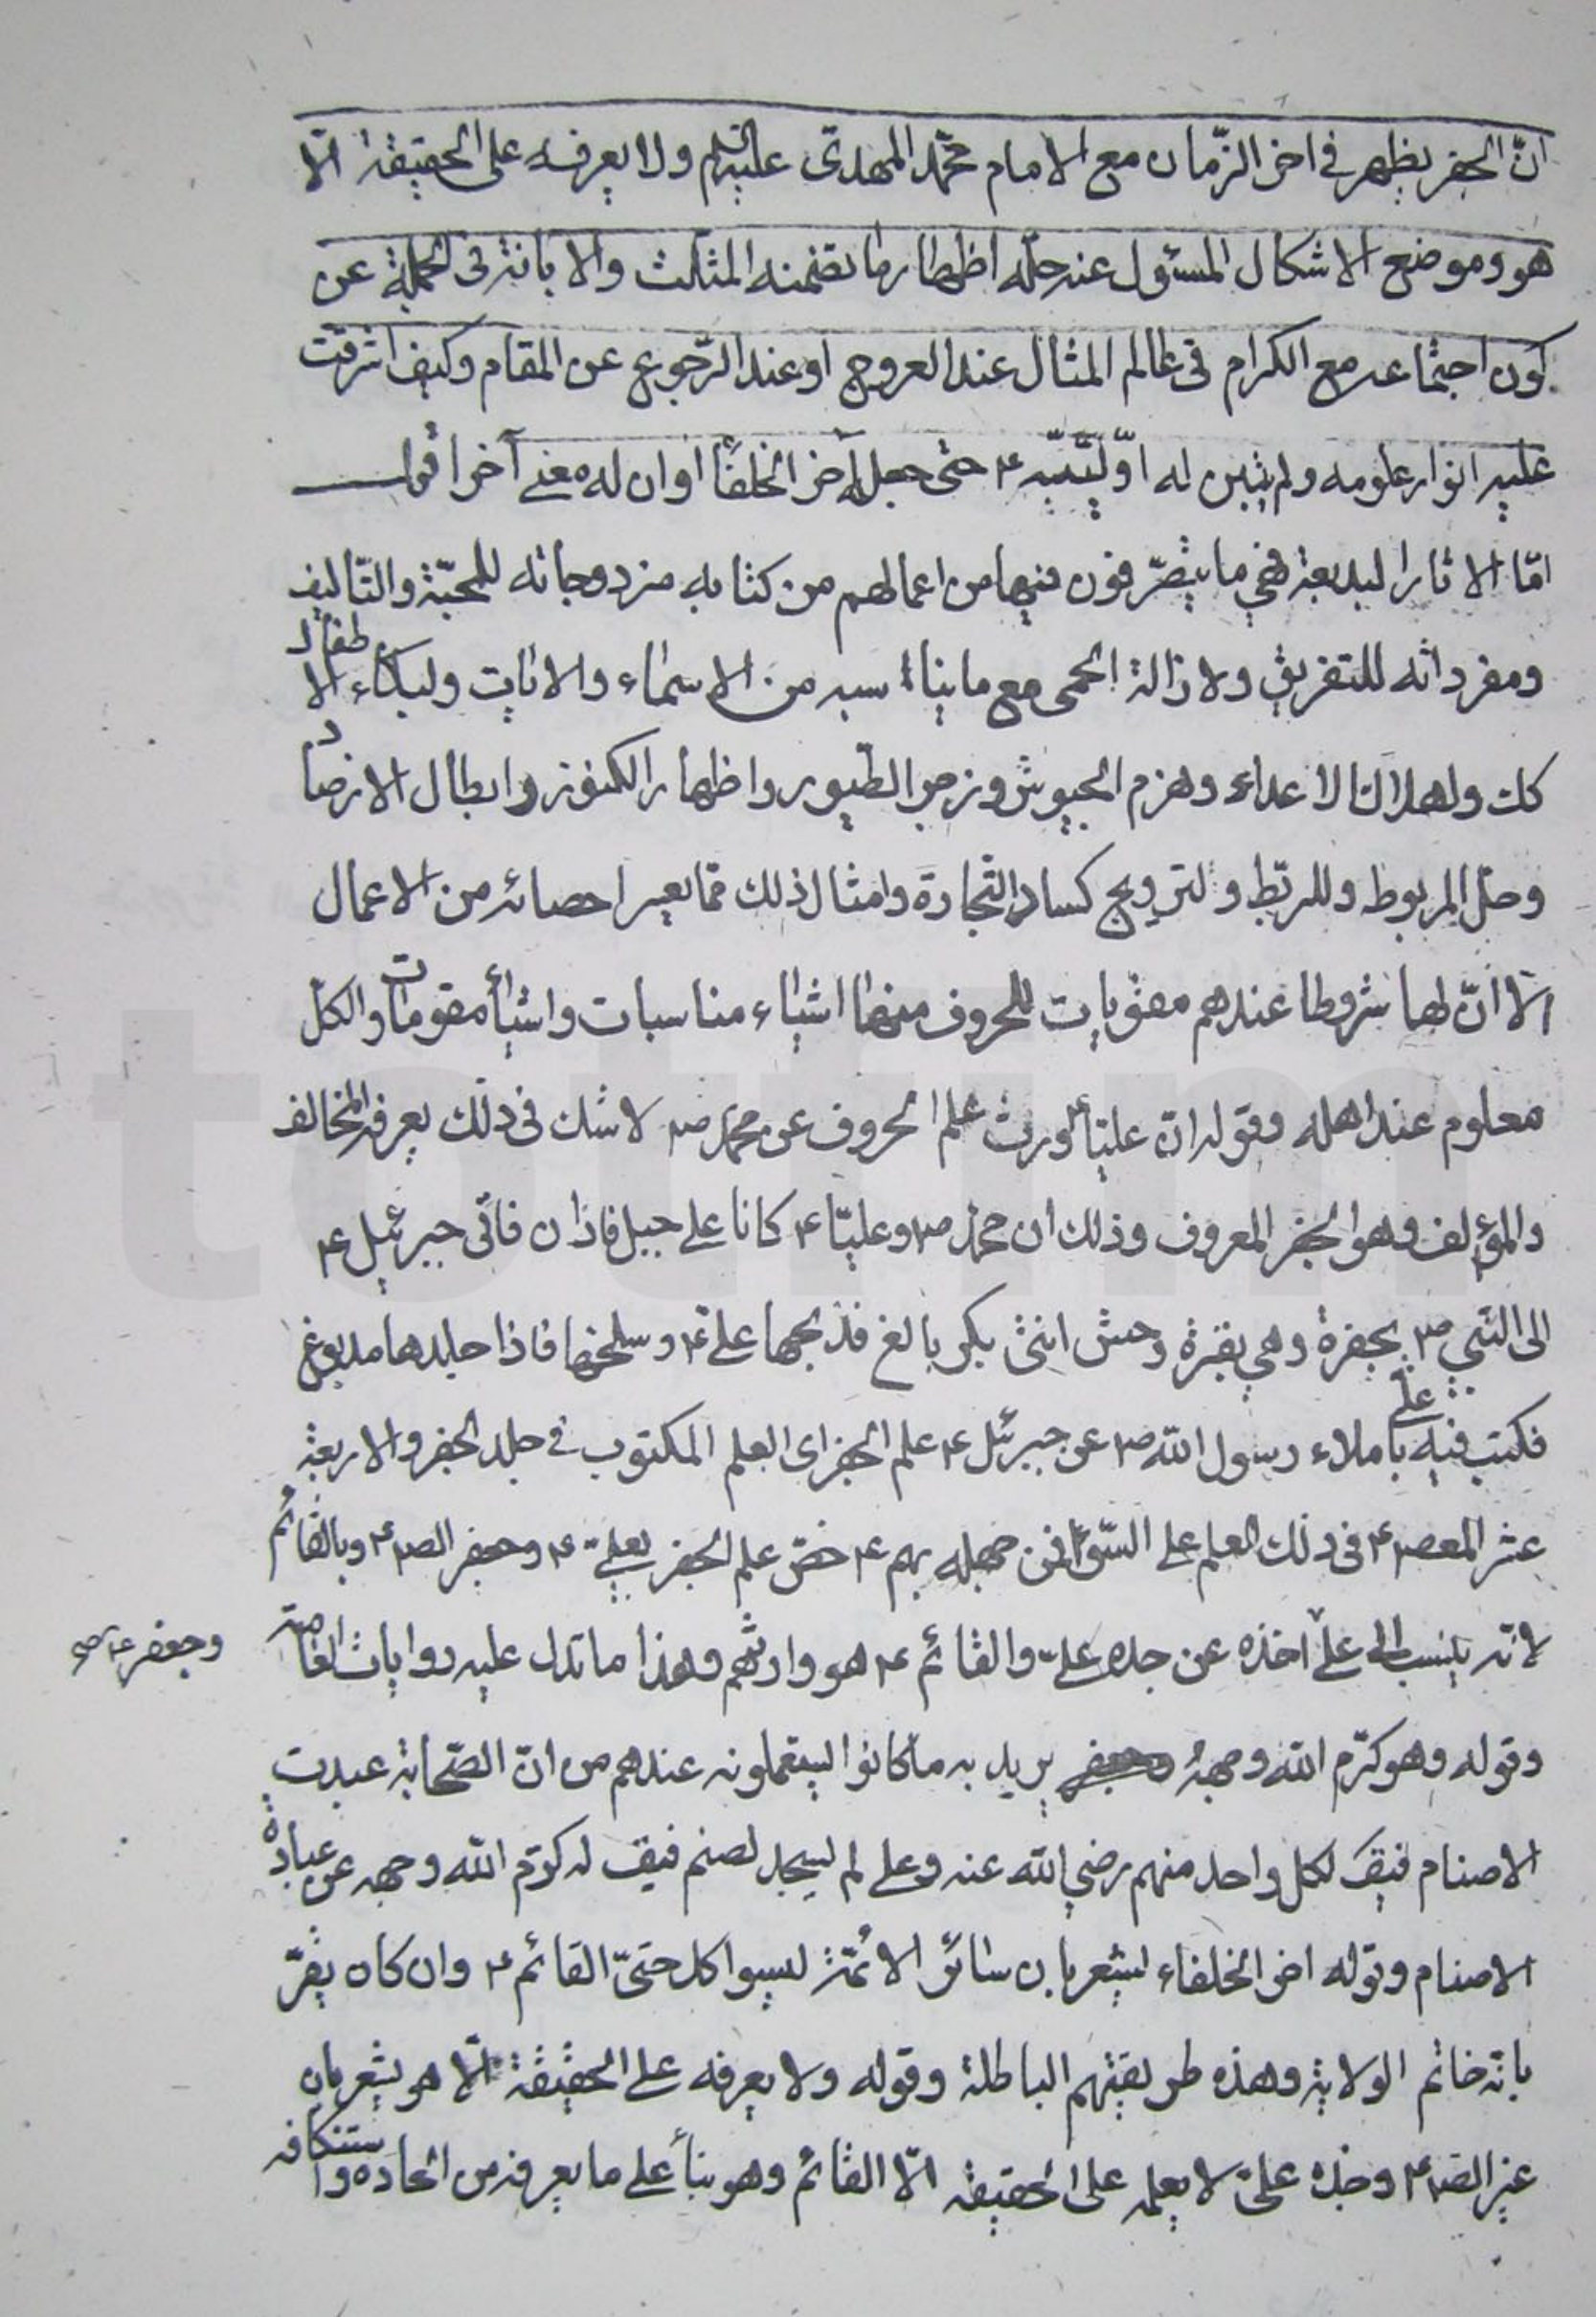 انّ الجفر يظهر في اخر الزّمان مع الامام محمّد المهدىّ عليه السلم ولا يعرفه على الحقيقة الّا
هو وموضع الاشكال المسئول عنه حلّه اظهار ما تضمنه المثلّث والابانة في الجملة عن
كون اجتماعه مع الكرام في عالم المثال عند العروج او عند الرّجوع عن المقام وكيف اشرقت
عليه انوار علومه ولم يتبين له اوّليّته ع حتى جعله آخر الخلفآ او ان له معنى آخر اقول
امّا الاثار البديعة فهي ما يتصرّفون فيها من اعمالهم من كتابه مزدوجاته للمحبّة والتّاليف
ومفرداته للتفريق ولازالة الحمى مع ما يناسبه من الاسماء والايات ولبكاء الاطفال
كك ولهلاك الاعداء وهزم الجيوش وزجر الطّيور واظهار الكنوز وابطال الارصاد
وحلّ المربوط وللربّط ولترويج كساد التّجارة وامثال ذلك ممّا يعسر احصائه من الاعمال
الّا انّ لها شروطا عندهم مقوّيات للحروف منها اشياء مناسبات واشيآء مقومات والكلّ
معلوم عند اهله وقوله انّ عليّا ع ورث علم الحروف عن محمّد ص لا شك في ذلك يعرفه المخالف
والمؤلف وهو الجفر المعروف وذلك ان محمّد ص وعليّا ع كانا على جبل فاذان فاتى جبرئيل ع
الى النّبي ص بجفرة وهي بقرة وحش انثى بكر بالغ فذبحها علىّ ع وسلخها فاذا جلدها مدبوغ
فكتب فيه علىّ باملاء رسول الله ص عن جبرئيل ع علم الجفر اى العلم المكتوب في جلد الجفر والاربعة
عشر المعص ع في ذلك العلم على السّوآء فمن جهله بهم ع خصّ علم الجفر بعلىّ ع وجعفر الص ع وبالقائم
لانّه ينسب الى علىّ اخذه عن جده علىّ والقائم ع هو وارثهم وهذا ما تدل عليه روايات العامّة
وجعفر ع صح
وقوله وهو كرّم الله وجهه يريد به ما كانوا يستعملونه عندهم من انّ الصّحابة عبدت
الاصنام فيقَ لكل واحد منهم رضي الله عنه وعلي لم يسجد لصنم فيقَ له كرّم الله وجهه عن عبادة
الاصنام وقوله اخر الخلفاء ليشعر بان سائر الائمّة ليسوا كل حتىّ القائم ع وان كان يقرّ
بانّه خاتم الولاية وهذه طريقتهم الباطلة وقوله ولا يعرفه على الحقيقة الّا هو يشعر بان
غير الص ع وجده علىّ لا يعلمه على الحقيقه الّا القائم وهو بنآء على ما يعرفه من اتحاده واستنكافه